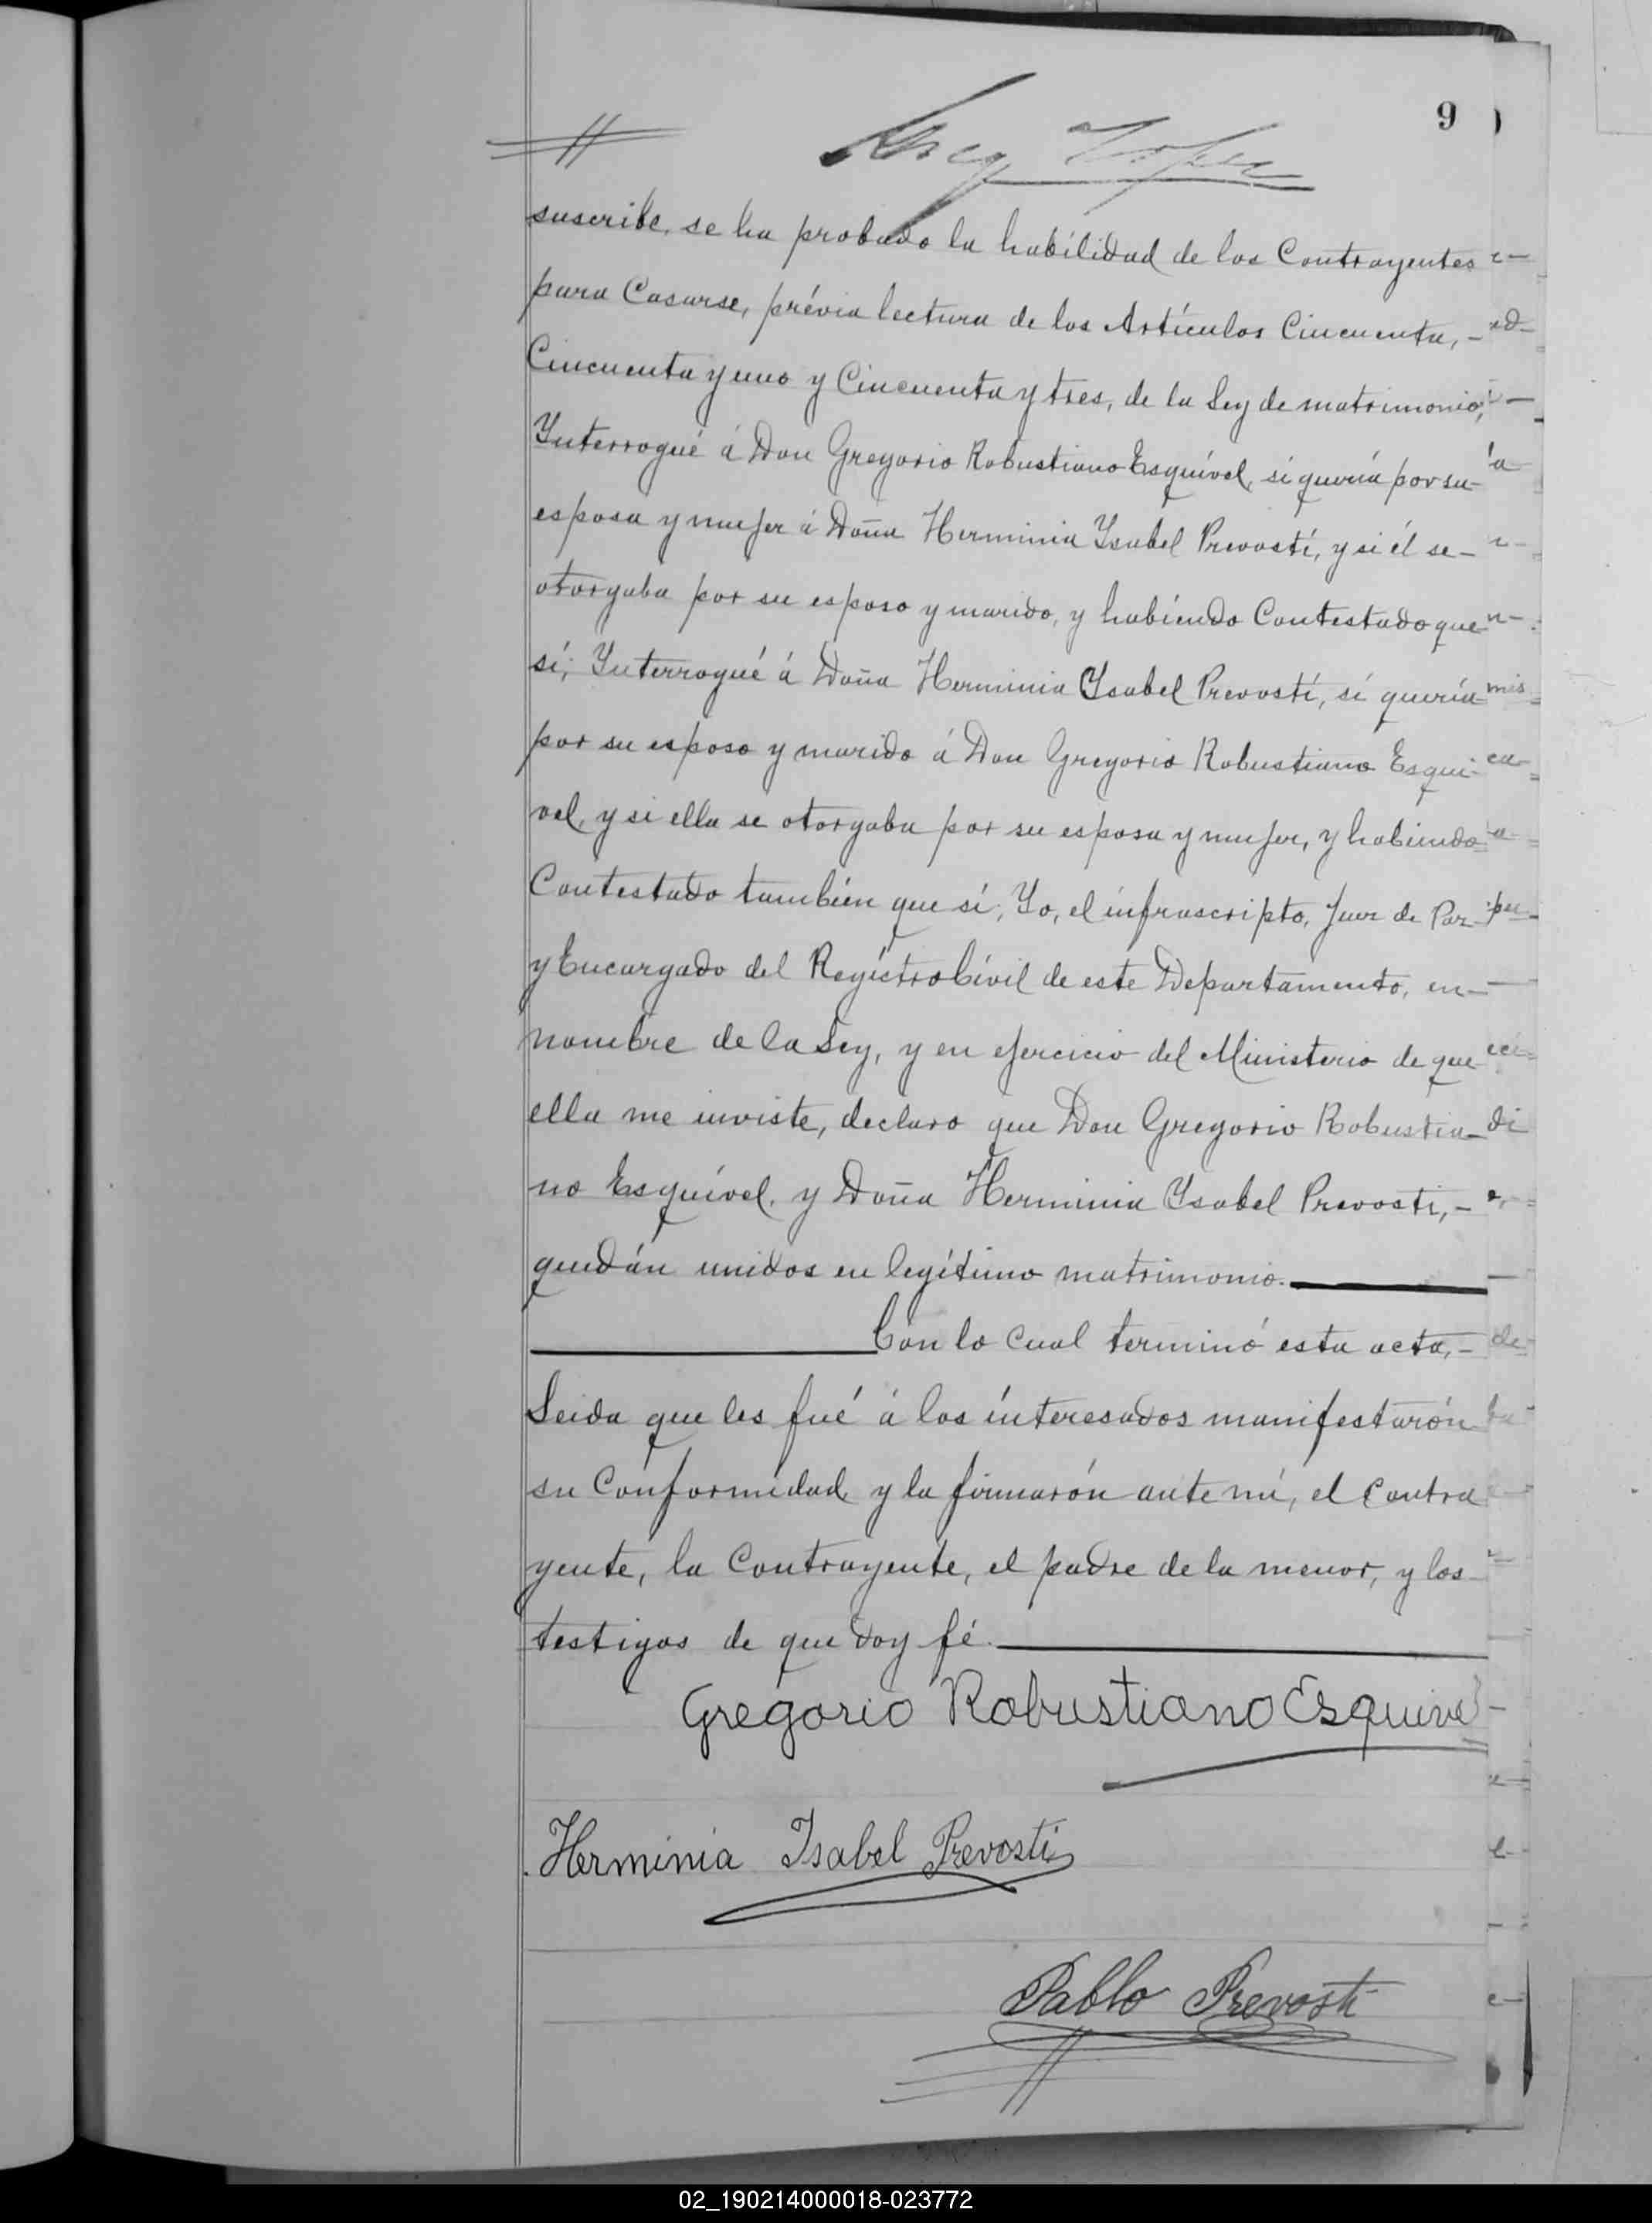 9
suscribe, se ha probado la habilidad de los Contrayentes
para Casarse, prévia lectura de los Artículos Cincuenta, -
Cincuenta y uno y Cincuenta y tres, de la Ley de matrimonio,
Ynterrogué á Don Gregorio Robustiano Esquível, si quería por su-
esposa y mujer á Doña Herminia Ysabel Prevosti, y si él se-
otorgaba por su esposo y marido, y habiendo Contestado que
sí; Ynterrogué á Doña Herminia Ysabel Prevostí, si quería
por su esposo y marido á Don Gregorio Robustiano Esqui-
vel, y si ella se otorgaba por su esposa y mujer, y habiendo
Contestado también que sí, Yo, el infrascripto, Juez de Paz
y Encargado del Regístro Cívil de este Departamento, en-
nombre de la Ley, y en ejercicio del Ministerio de que
ella me inviste, declaro que Don Gregorio Robustia-
no Esquível, y Doña Herminia Ysabel Prevosti, -
quedán unidos en legítimo matrimonio.
Con lo Cual terminó esta acta, -
Leida que les fué á los interesados manifestarón
su Conformidad y la firmarón ante mi, el Contra
yente, la Contrayente, el padre de la menor, y los
testigos de que doy fé.
Gregorio Robustiano Esquivel
Herminia Isabel Prevosti
Pablo Prevosti
02_190214000018-023772